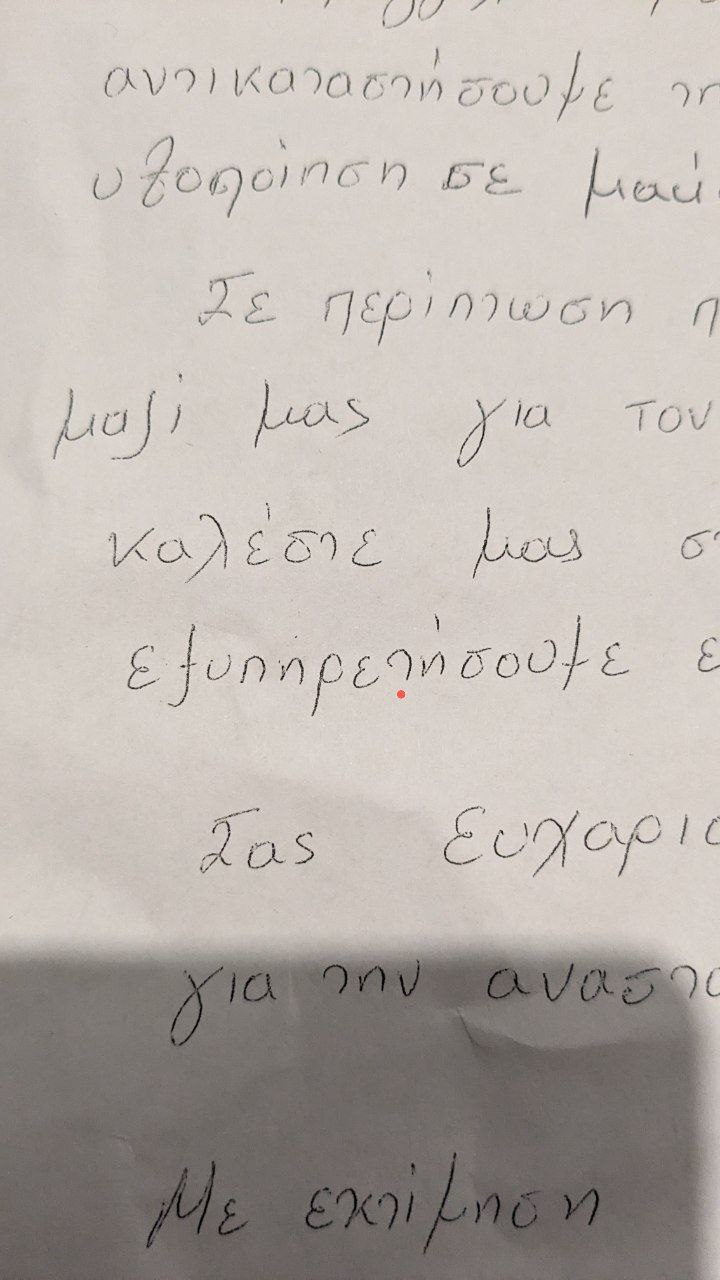 αντικαταστήσουμε τη
υλοποίηση σε
Σε περίπτωση π
μαζί μας για τον
καλέστε μας στ
εξυπηρετήσουμε ε
Σας Ευχαρισ
για την αναστα
Με εκτίμηση